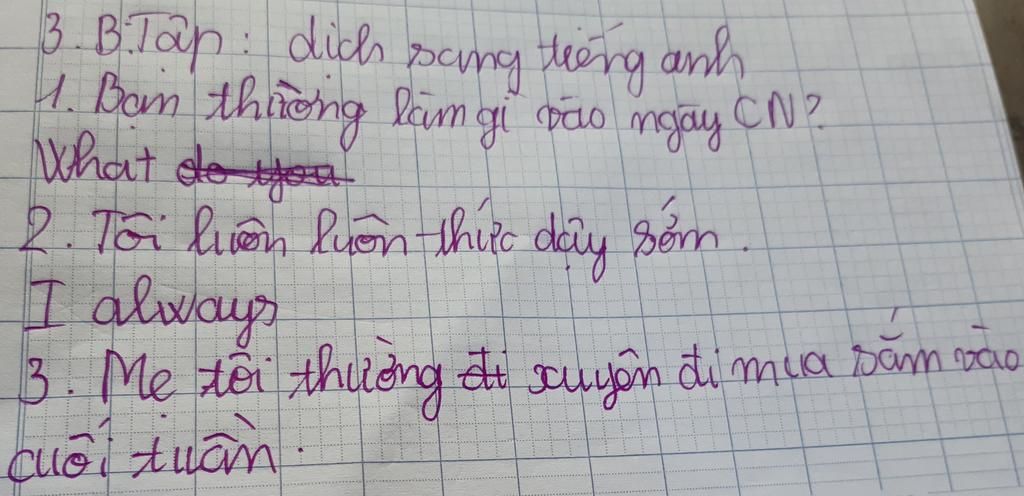 3. B.Tập: dịch sang tiếng anh
1. Bạn thường làm gì vào ngày CN?
What do you
2. Tôi luôn luôn thức dậy sớm.
I always
3. Mẹ tôi thường đi xuyên đi mua sắm vào
cuối tuần.